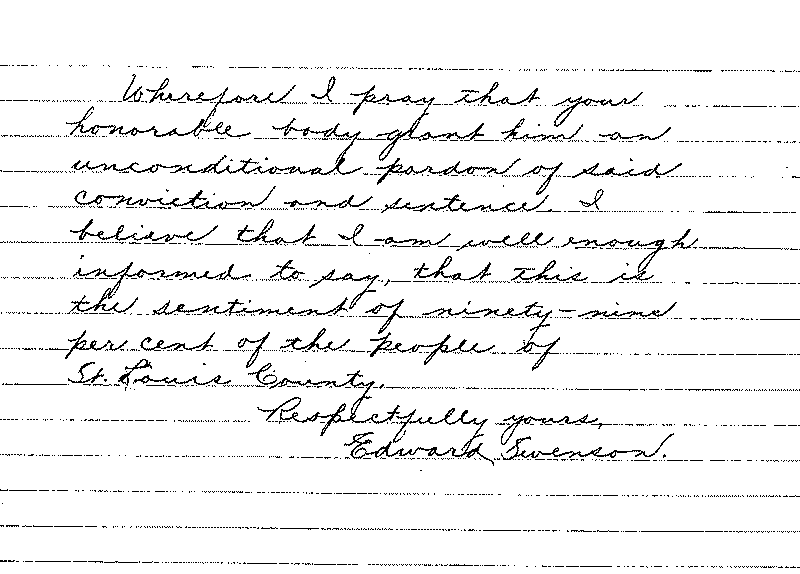 Wherefore I pray that your
honorable body grant him an
unconditional pardon of said
conviction and sentence. I
believe that I am well enough
informed to say, that this is
the sentiment of ninety-nine
per cent of the people of
St. Louis County.
Respectfully yours,
Edward Swenson.